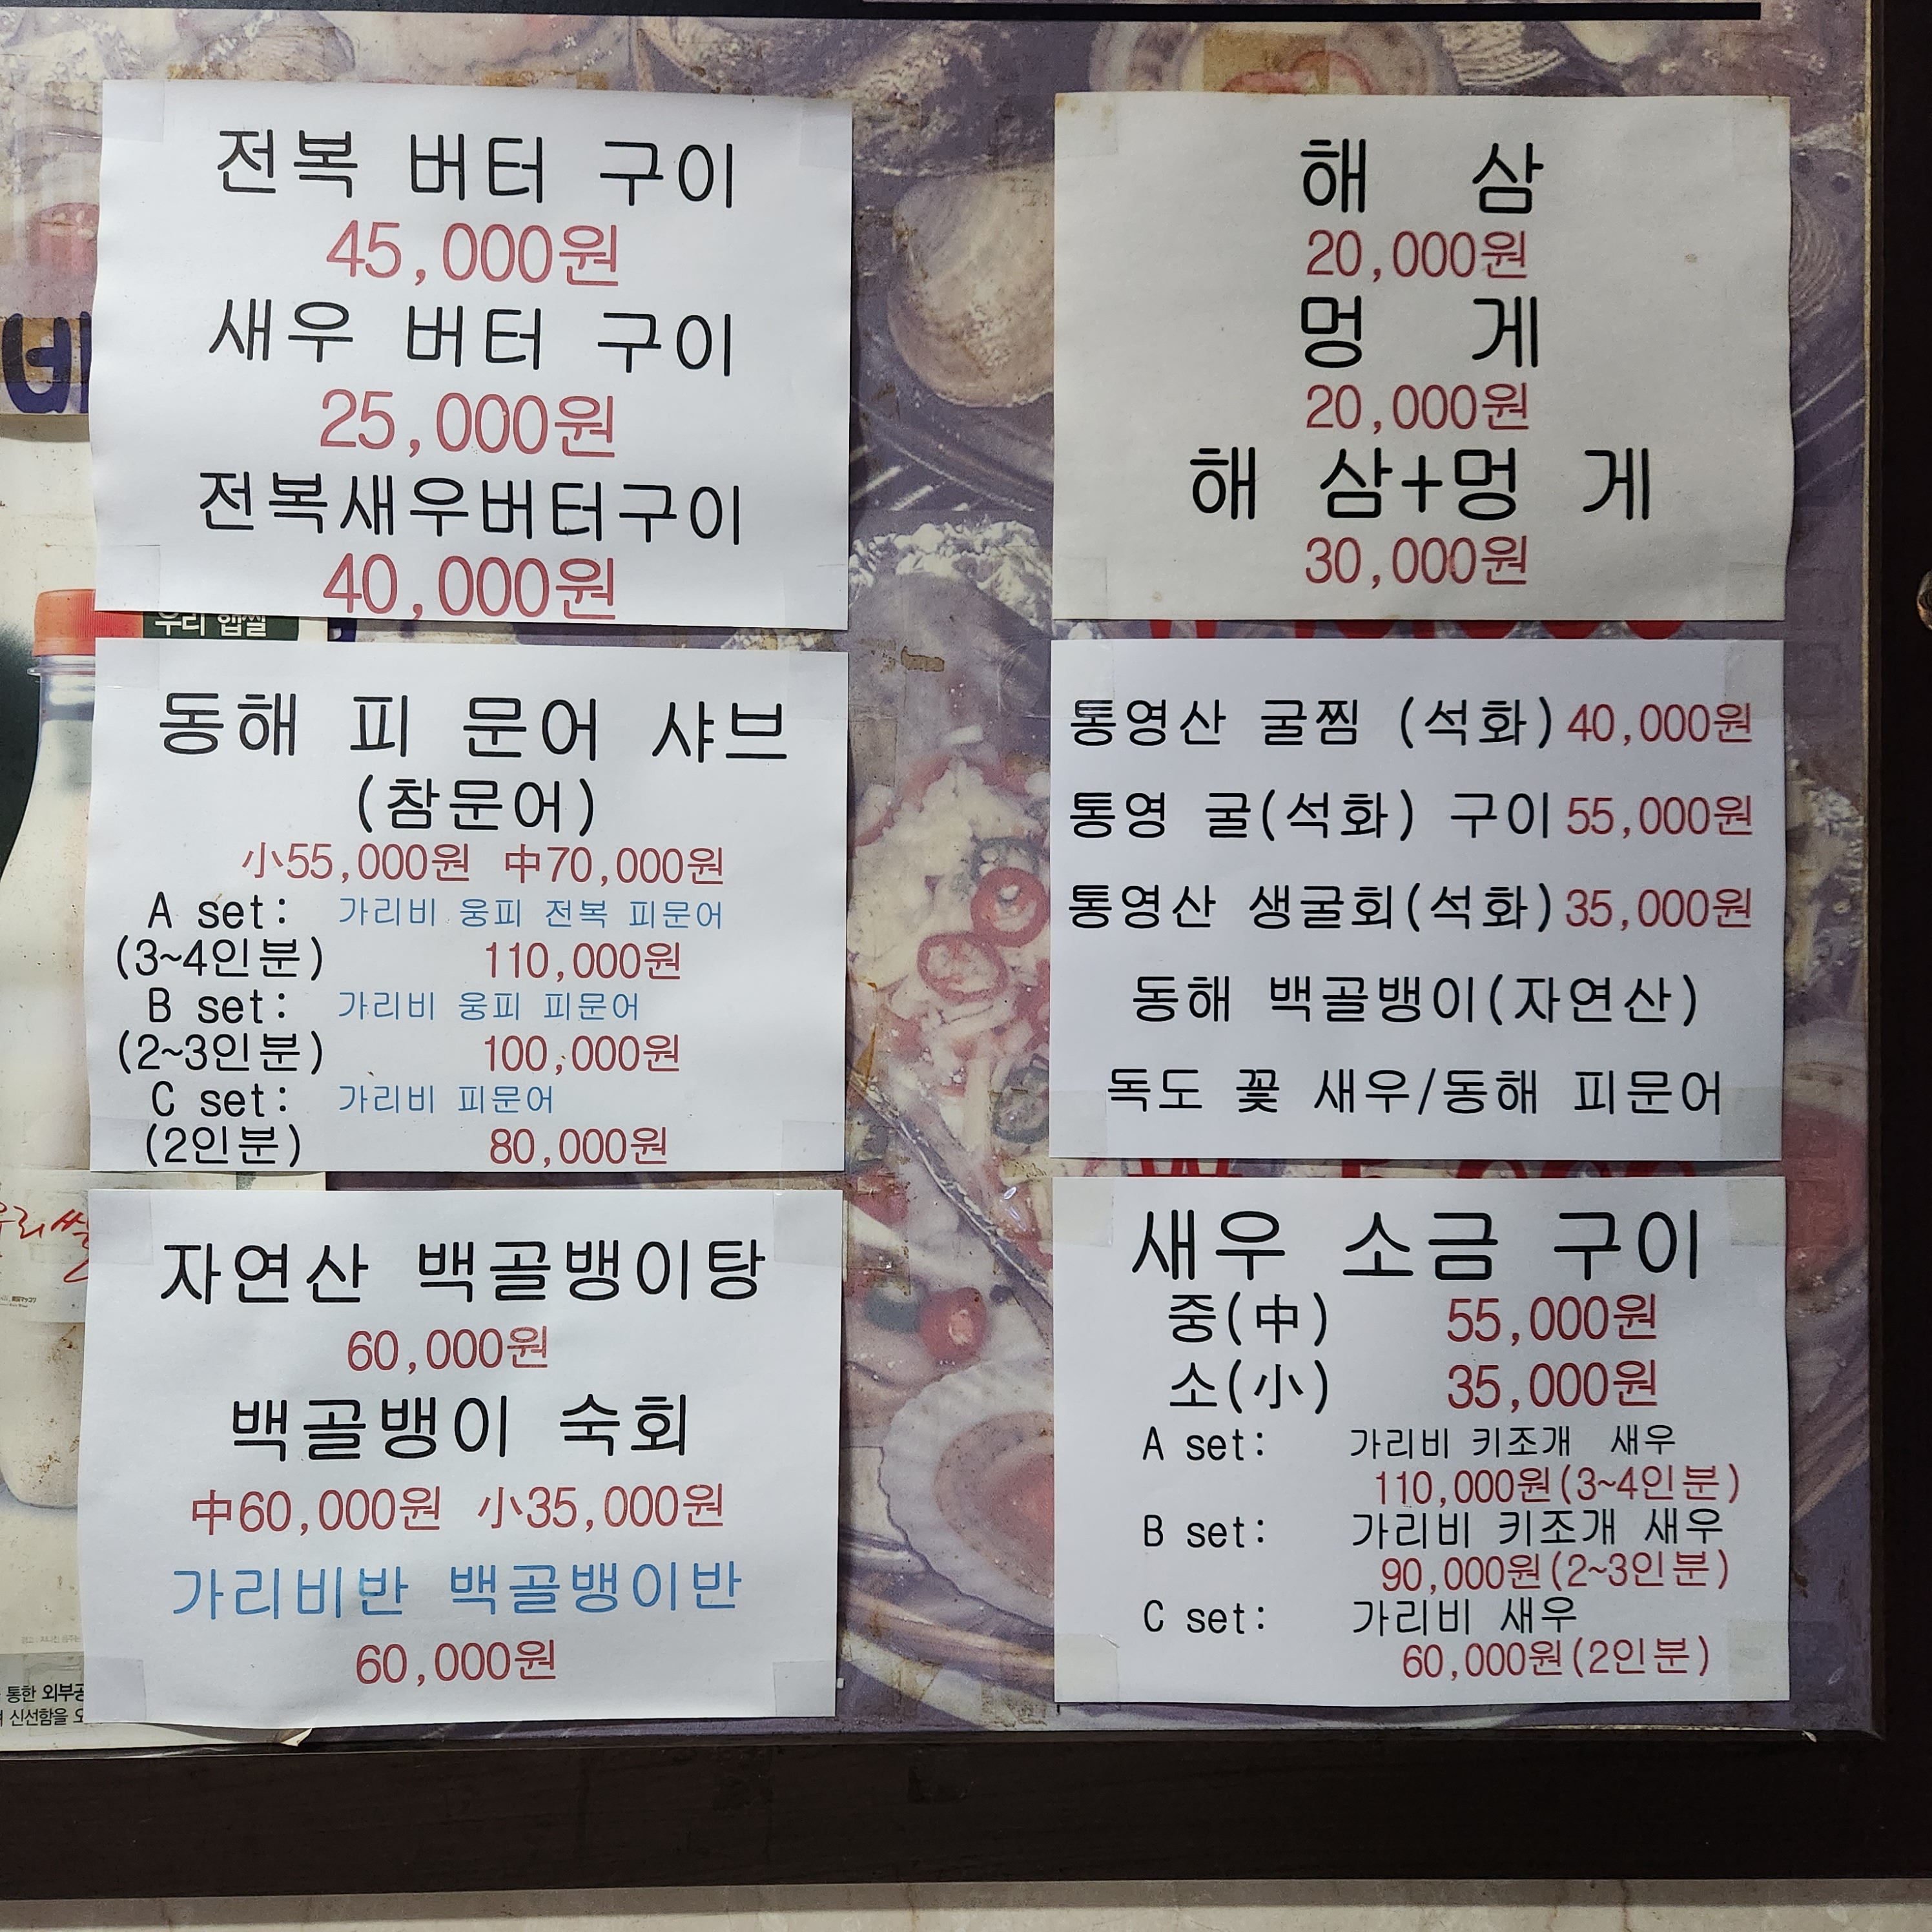 전복 버터 구이
45,000원
새우 버터 구이
25,000원
전복새우버터구이
40,000원
해 삼
20,000원
멍 게
20,000원
해 삼+멍 게
30,000원
동해 피 문어 샤브
(참문어)
小55,000원 中70,000원
A set: 가리비 웅피 전복 피문어
(3~4인분) 110,000원
B set: 가리비 웅피 피문어
(2~3인분) 100,000원
C set: 가리비 피문어
(2인분) 80,000원
통영산 굴찜 (석화) 40,000원
통영 굴(석화) 구이 55,000원
통영산 생굴회(석화) 35,000원
동해 백골뱅이(자연산)
독도 꽃 새우/동해 피문어
자연산 백골뱅이탕
60,000원
백골뱅이 숙회
中60,000원 小35,000원
가리비반 백골뱅이반
60,000원
새우 소금 구이
중(中) 55,000원
소(小) 35,000원
A set: 가리비 키조개 새우
110,000원(3~4인분)
B set: 가리비 키조개 새우
90,000원(2~3인분)
C set: 가리비 새우
60,000원(2인분)
우리 햅쌀
통한 외부공
신선함을